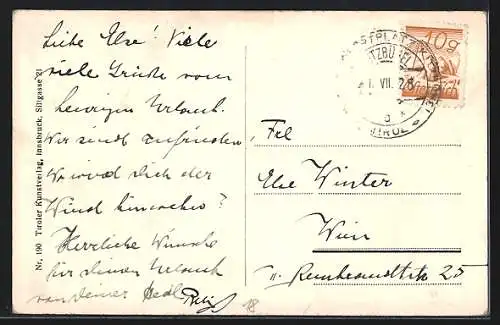 Liebe Else! Viele
viele Grüße vom
heurigen Urlaub.
Wir sind zufrieden
Wo wird dich der
Wind hinwehen?
Herzliche Wünsche
für deinen Urlaub
von deiner Hedl
Nr. 190 Tiroler Kunstverlag, Innsbruck, Sillgasse 21
10g
VII. 28
TIROL
Frl
Else Winter
Wien
Rembrandtstr 25
18